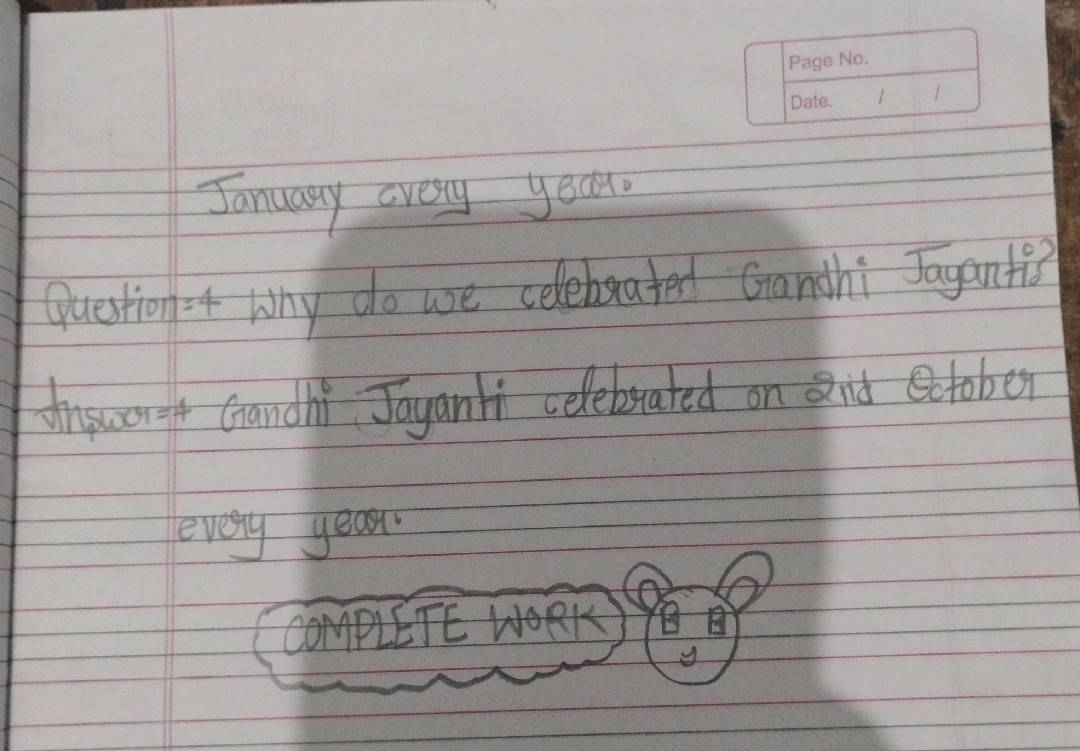 Page No.
Date. / /
January every year.
Question=4 Why do we celebrated Gandhi Jayanti?
Answer=4 Gandhi Jayanti celebrated on 2nd October
every year.
COMPLETE WORK